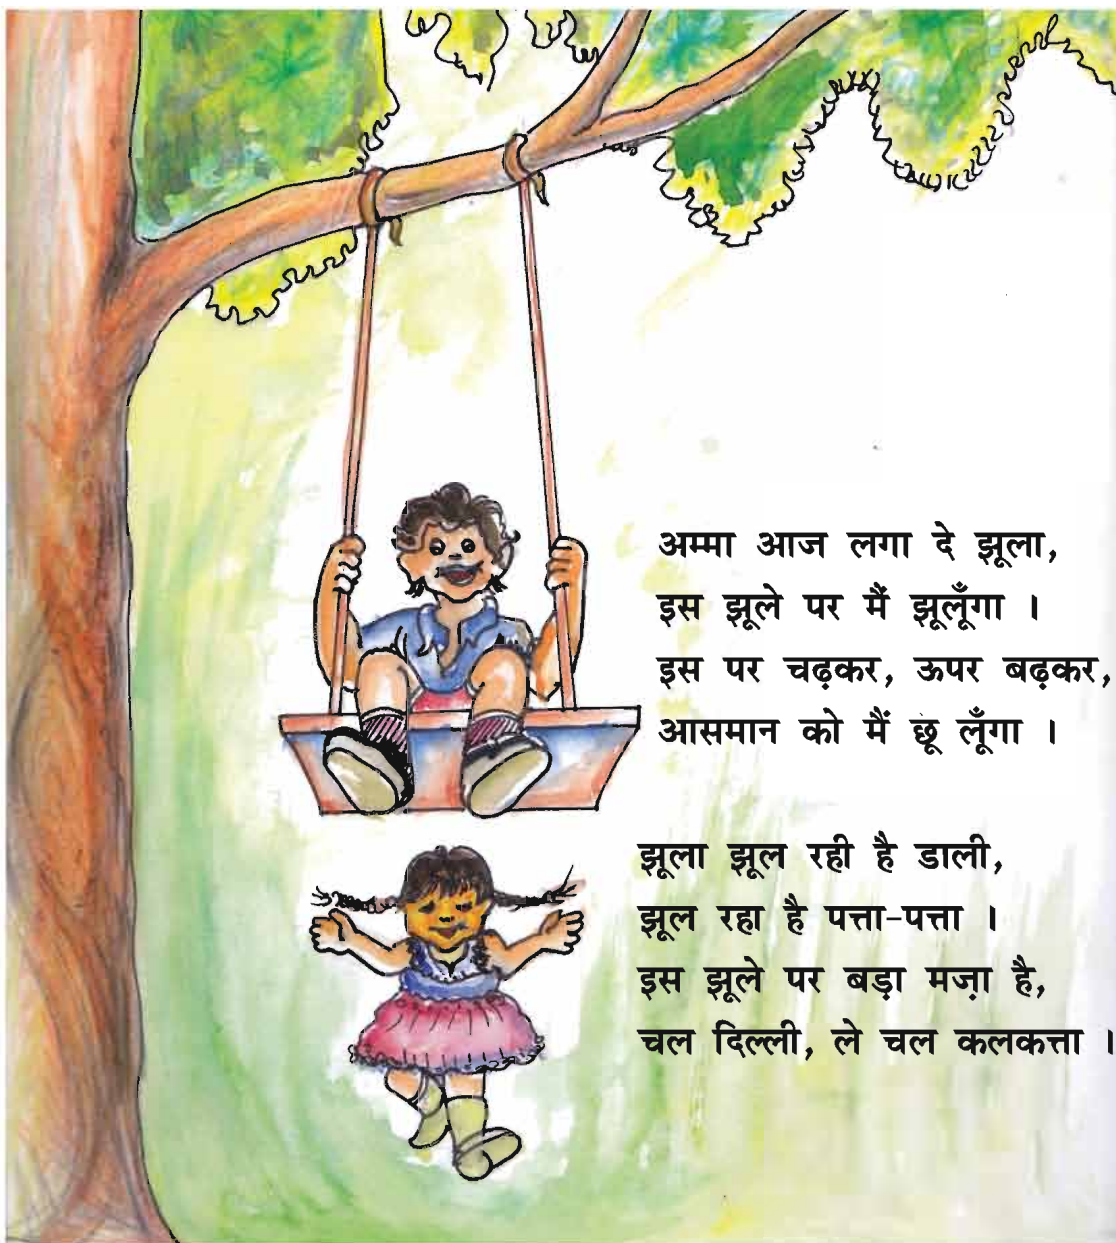 अम्मा आज लगा दे झूला,
इस झूले पर मैं झूलूँगा ।
इस पर चढ़कर, ऊपर बढ़कर,
आसमान को मैं छू लूँगा ।
झूला झूल रही है डाली,
झूल रहा है पत्ता-पत्ता ।
इस झूले पर बड़ा मज़ा है,
चल दिल्ली, ले चल कलकत्ता ।